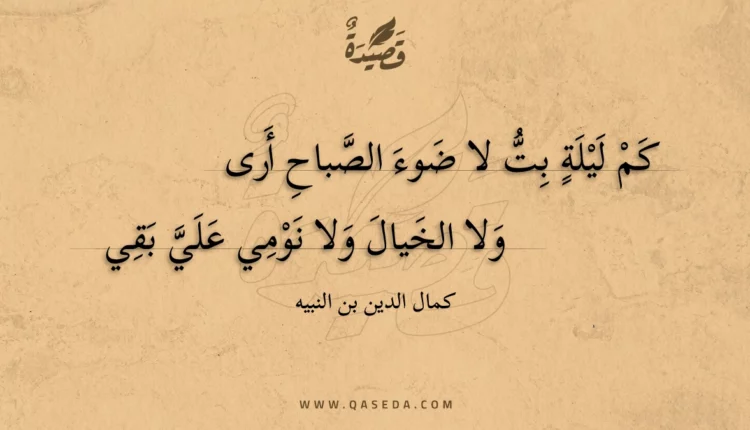 قَصِيْدَةٌ
كَمْ لَيْلَةٍ بِتُّ لا ضَوءَ الصَّباحِ أَرى
وَلا الخَيالَ وَلا نَوْمِي عَلَيَّ بَقِي
كمال الدين بن النبيه
WWW.QASEDA.COM